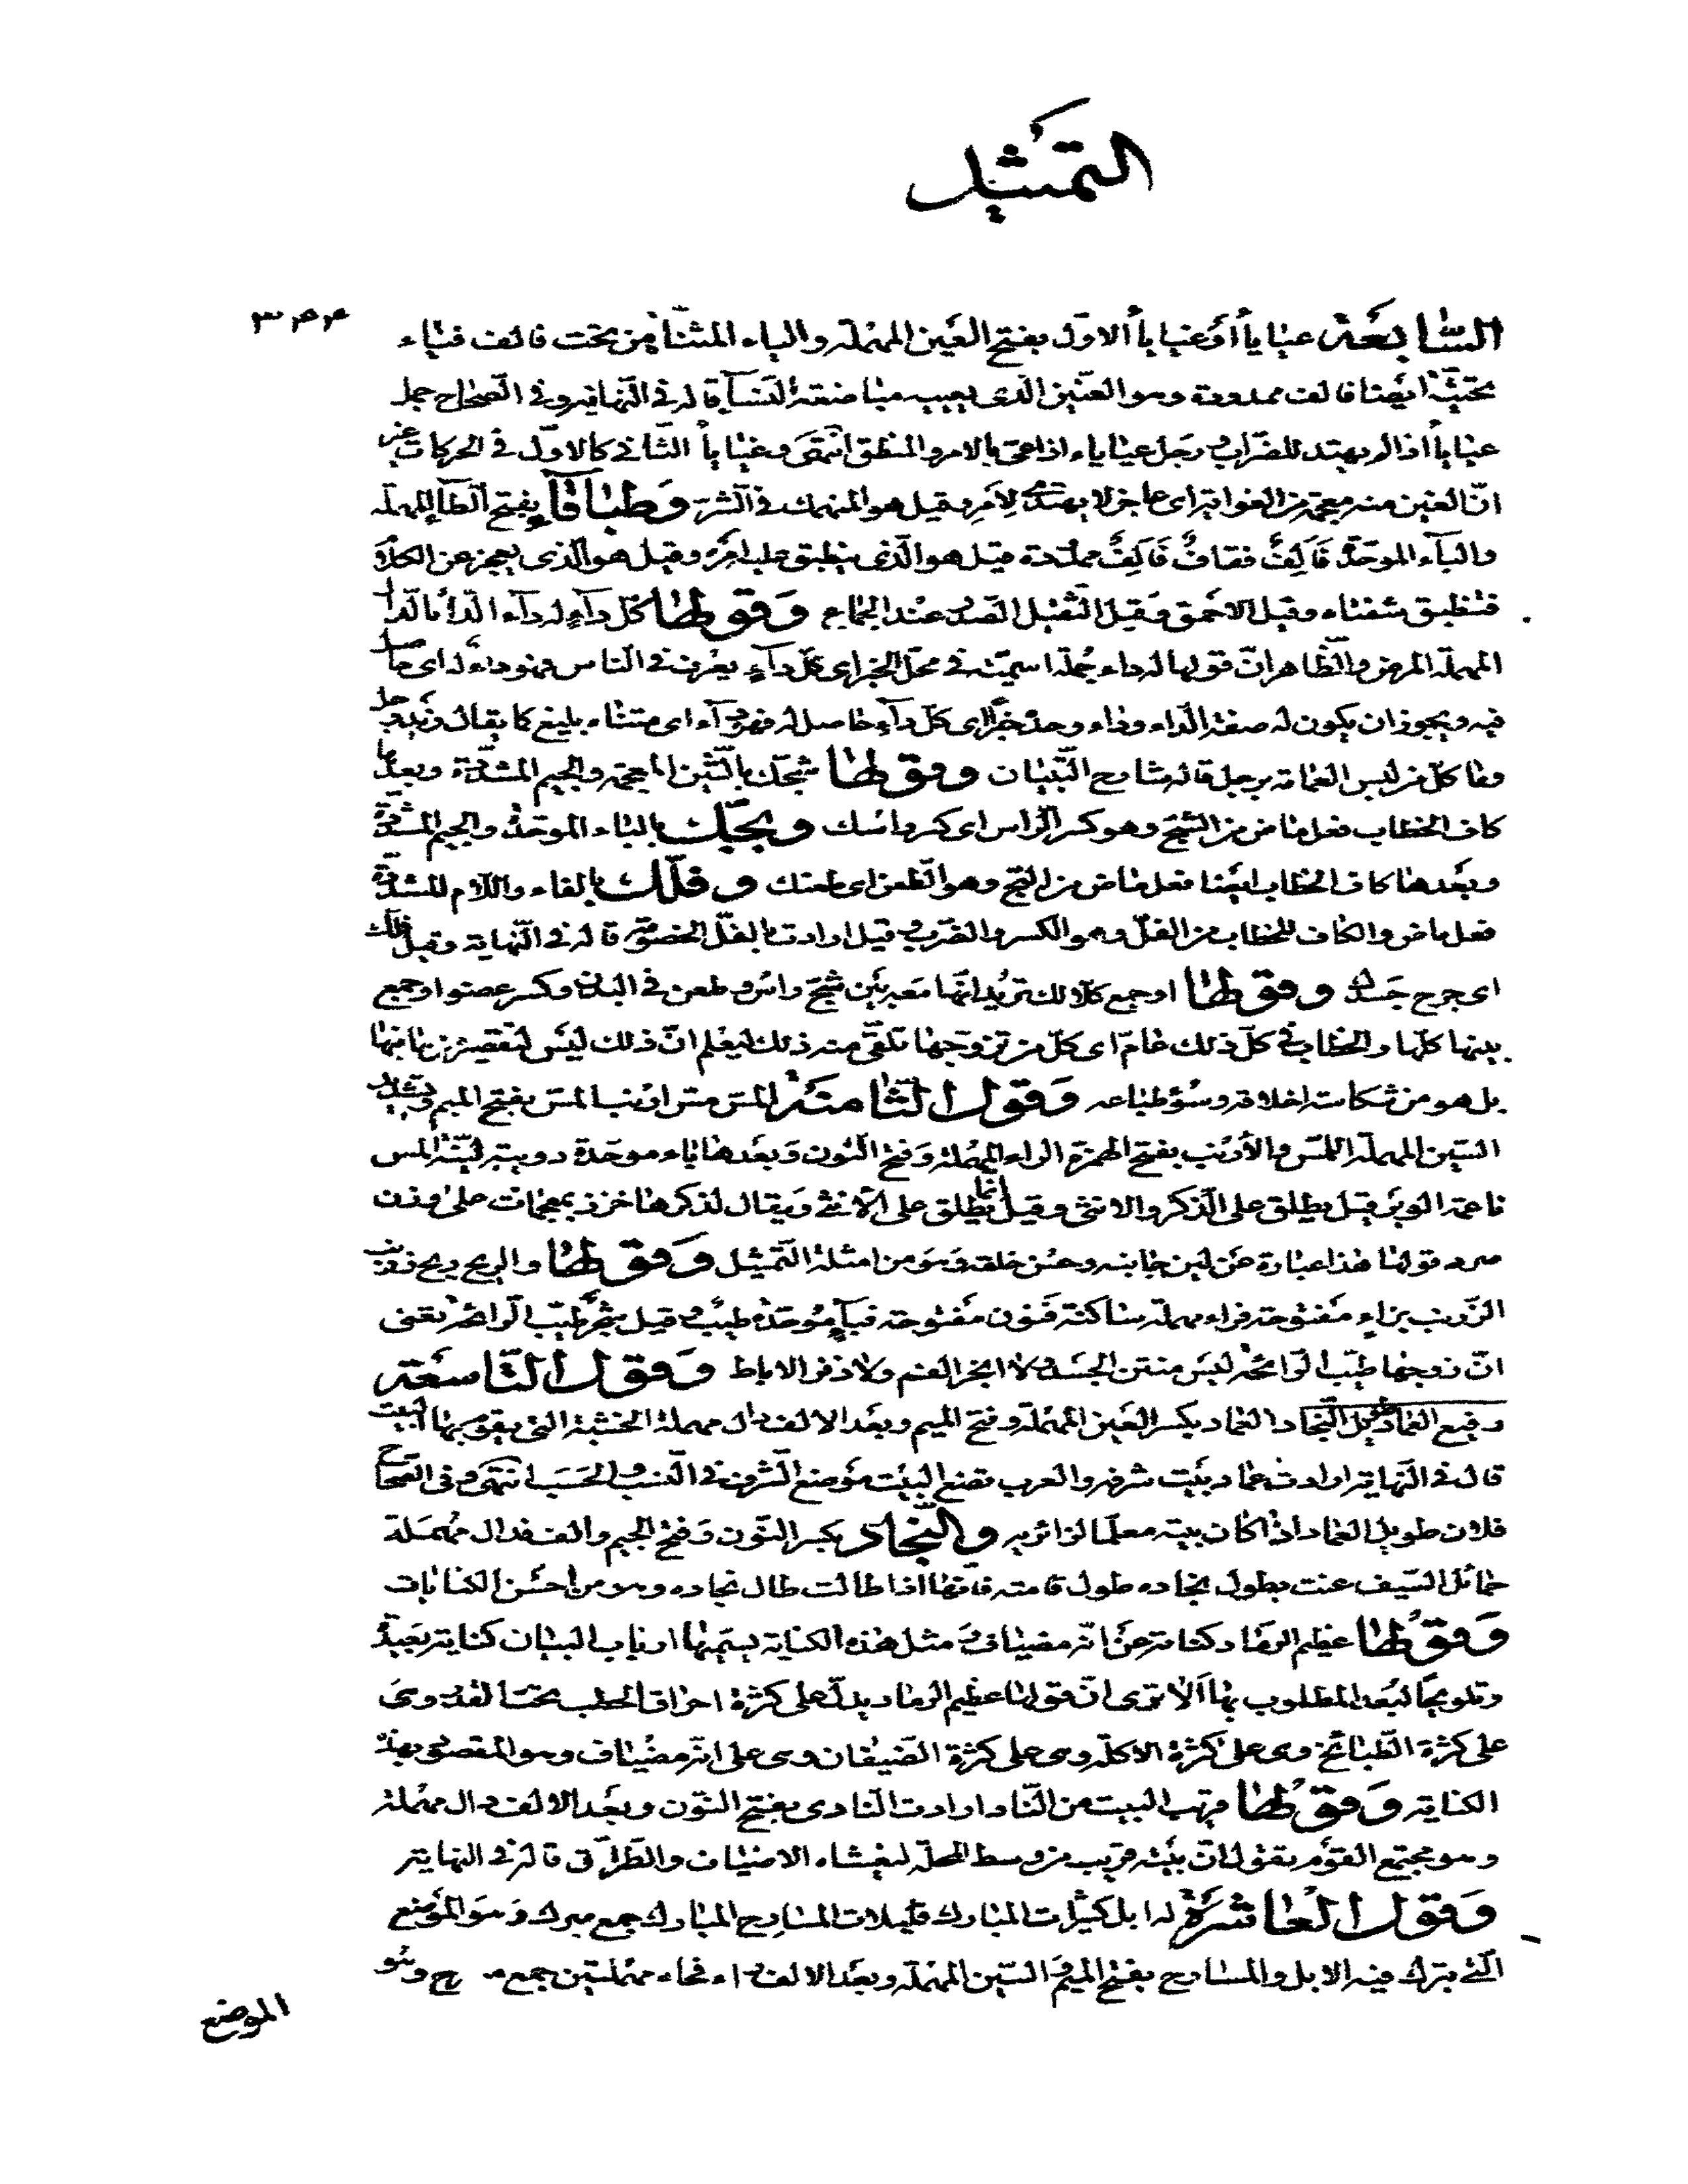 التمثيل
٣٤٤
السّابعة عياياً أو غياياً الاوّل بفتح العين المهملة والياء المثنّاة من تحت فالف فياء
تحتيّة ايضا فالف ممدودة وهو العنين الذى يعييه مباضعة النسآء قاله فى النهاية وفى الصّحاح جمل
عياياً اذا لم يهتد للضراب ورجل عياياء اذا عى بالامر والمنطق انتهى وغياياً الثانى كالاوّل فى الحركات غير
انّ الغين منه معجمة من الغواية اى عاجز لا يهتدى لامر وقيل هو المنهمك فى الشر وطباقاً بفتح الطآء المهملة
والبآء الموحّدة فالف فقاف فالف ممدودة قيل هو الّذى ينطبق عليه امره وقيل هو الّذى يعجز عن الكلام
فتنطبق شفتاه وقيل الاحمق وقيل الثقيل الصدر عند الجماع وقولها كلّ دآءٍ له دآء الدّاء بالدال
المهملة المرض والظّاهر انّ قولها له داء جُملة اسميّة فى محلّ الخبر اى كلّ دآءٍ يعرف فى الناس فهو داء له اى حاصل
فيه ويجوز ان يكون له صفة الدّاء وداء وحده خبراً اى كلّ دآءٍ حاصل له فهو دآء اى متناه بليغ كما يقال زيد رجل
وما كلّ من لبس العمامة برجل قاله شارح التّبيان وقولها شجّك بالشّين المعجمة والجيم المشدّدة وبعدها
كاف الخطاب فعل ماض من الشجّ وهو كسر الرّاس اى كسر راسك وبجّك بالباء الموحّدة والجيم المشدّدة
وبعدها كاف الخطاب ايضا فعل ماض من البجّ وهو الطعن اى طعنك وفلّك بالفاء واللّام المشدّدة
فعل ماض والكاف للخطاب من الفلّ وهو الكسر والضرب وقيل ارادت بالفلّ الخصومة قاله فى النّهاية وقيل فلك
اى جرح جسدك وقولها او جمع كلّا لك تريد انّها معه بين شجّ راس وطعن فى البدن وكسر عضو او جمع
بينها كلّها والخطاب فى كلّ ذلك عامّ اى كلّ من تزوّجها تلقى منه ذلك ليعلم انّ ذلك ليس لتقصير منها
بل هو من شكاسة اخلاقه وسُوء طباعه وقول الثّامنة المسّ مسّ ارنب المسّ بفتح الميم وتشديد
السّين المهملة اللمس والأرنب بفتح الهمزة الراء المهملة وفتح النّون وبعدها باء موحّدة دويبة ليّنة المس
ناعمة الوبر قيل يطلق على الذكر والانثى وقيل انما يطلق على الأنثى ويقال لذكرها خزز بمعجمات على وزن
صرد قولها هذا عبارة عن لين جانبه وحسن خلقه وهو من امثلة التّمثيل وقولها والريح ريح زرنب
الزّرنب بزاء مفتوحة فراء مهملة ساكنة فنون مفتوحة فبآءٍ مُوحّدة طيب وقيل شجر طيّب الرائحة يعنى
انّ زوجها طيّب الرّائحة ليس منتن الجسد ولا ابخر الفم ولا ذفر الاباط وقول التّاسعة
رفيع العماد طويل النجاد العماد بكسر العين المهملة وفتح الميم وبعد الالف دال مهملة الخشبة التى يقوم بها البيت
قاله فى النّهاية ارادت عماد بيت شرفه والعرب تضع البيت موضع الشّرف فى النسب والحسب انتهى وفى الصّحاح
فلان طويل العماد اذا كان بيته معلما لزائريه والنّجاد بكسر النّون وفتح الجيم والف فدال مُهمَلة
حمائل السّيف عنت بطول نجاده طول قامته فانّها اذا طالت طال نجاده وهو من احسن الكنايات
وقولها عظيم الرماد كناية عن انّه مضياف ومثل هذه الكناية يسمّيها ارباب البيان كناية بعيدة
وتلويحاً لبُعد المطلوب بها ألا ترى انّ قولها عظيم الرماد يدلّ على كثرة احراق الحطب تحت القدر وهى
على كثرة الطّبائخ وهى على كثرة الاكلة وهى على كثرة الضّيفان وهى على انّه مضياف وهو المقصود بهذه
الكناية وقولها قريب البيت من النّاد ارادت النّادى بفتح النّون وبعد الالف دال مهملة
وهو مجتمع القوم تقول انّ بيته قريب من وسط المحلّة ليغشاه الاضياف والطّرّاق قاله فى النهاية
وقول العاشرة له ابل كثيرات المبارك قليلات المسارح المبارك جمع مبرك وهو الموضع
الّذى تبرك فيه الابل والمسارح بفتح الميم والسّين المهملة وبعد الالف راء فحاء مهملتين جمع مسرح وهو
الموضع